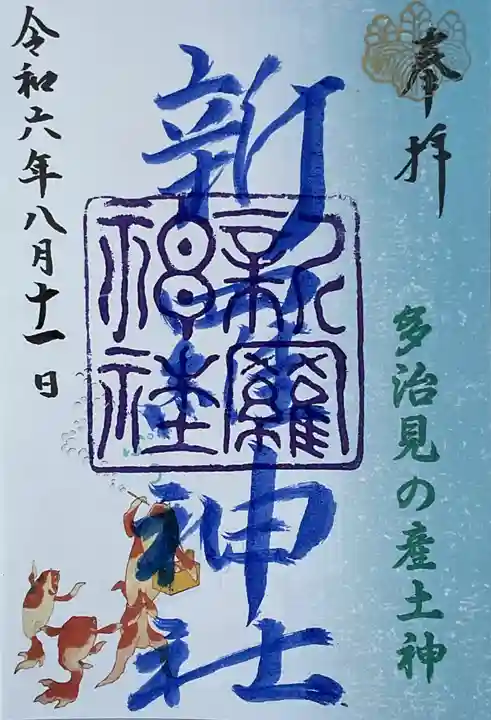 奉拝
多治見の産土神
新羅神社
新羅
神社
令和六年八月十一日